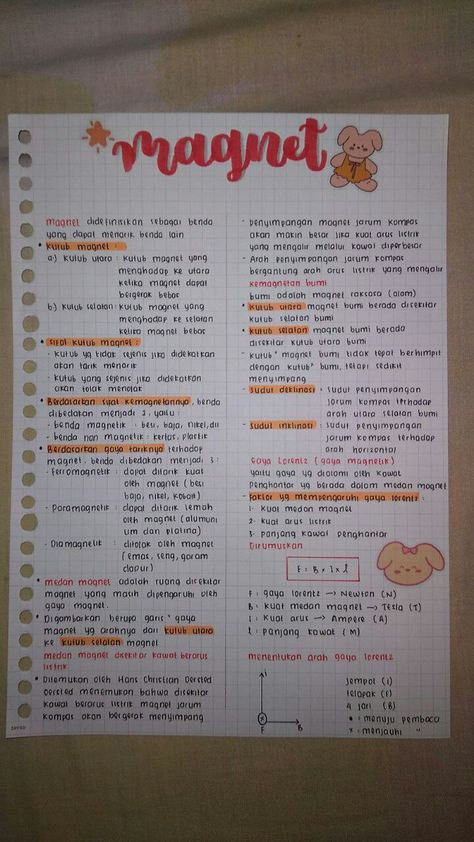 magnet
magnet didefinisikan sebagai benda
yang dapat menarik benda lain
• kutub magnet :
a.) kutub utara : kutub magnet yang
menghadap ke utara
ketika magnet dapat
bergerak bebas
b.) kutub selatan : kutub magnet yang
menghadap ke selatan
ketika magnet bebas
• sifat kutub magnet :
- kutub yg tidak sejenis jika didekatkan
akan tarik menarik
- kutub yang sejenis jika didekatkan
akan tolak menolak
• Berdasarkan sifat kemagnetannya, benda
dibedakan menjadi 2, yaitu :
- benda magnetik : besi, baja, nikel, dll
- benda non magnetik : kertas, plastik
• Berdasarkan gaya tariknya terhadap
magnet, benda dibedakan menjadi 3 :
- Ferromagnetik : dapat ditarik kuat
oleh magnet (besi
baja, nikel, kobalt)
- Paramagnetik : dapat ditarik lemah
oleh magnet (alumuni
um dan platina)
- Diamagnetik : ditolak oleh magnet
(emas, seng, garam
dapur)
• medan magnet adalah ruang disekitar
magnet yang masih dipengaruhi oleh
gaya magnet.
• Digambarkan berupa garis² gaya
magnet yg arahnya dari kutub utara
ke kutub selatan magnet
medan magnet disekitar kawat berarus
listrik
• Ditemukan oleh Hans Christian Oersted
Oersted menemukan bahwa disekitar
kawat berarus listrik magnet jarum
kompas akan bergerak menyimpang
- penyimpangan magnet jarum kompas
akan makin besar jika kuat arus listrik
yang mengalir melalui kawat diperbesar
- Arah penyimpangan jarum kompas
bergantung arah arus listrik yang mengalir
kemagnetan bumi
bumi adalah magnet raksasa (alam)
• kutub utara magnet bumi berada disekitar
kutub selatan bumi
• kutub selatan magnet bumi berada
disekitar kutub utara bumi
- kutub² magnet bumi tidak tepat berhimpit
dengan kutub² bumi, tetapi sedikit
menyimpang
- sudut deklinasi : sudut penyimpangan
jarum kompas terhadap
arah utara selatan bumi
- sudut inklinasi : sudut penyimpangan
jarum kompas terhadap
arah horizontal
Gaya Lorentz (gaya magnetik)
yaitu gaya yg dialami oleh kawat
penghantar yg berada dalam medan magnet
• Faktor yg mempengaruhi gaya lorentz :
1. kuat medan magnet
2. kuat arus listrik
3. panjang kawat penghantar
Dirumuskan
F = B x I x l
F : gaya lorentz → Newton (N)
B : kuat medan magnet → Tesla (T)
I : kuat arus → Ampere (A)
l : panjang kawat (M)
menentukan arah gaya lorentz
I
F
B
jempol (I)
telapak (F)
4 jari (B)
• : menuju pembaca
x : menjauhi "